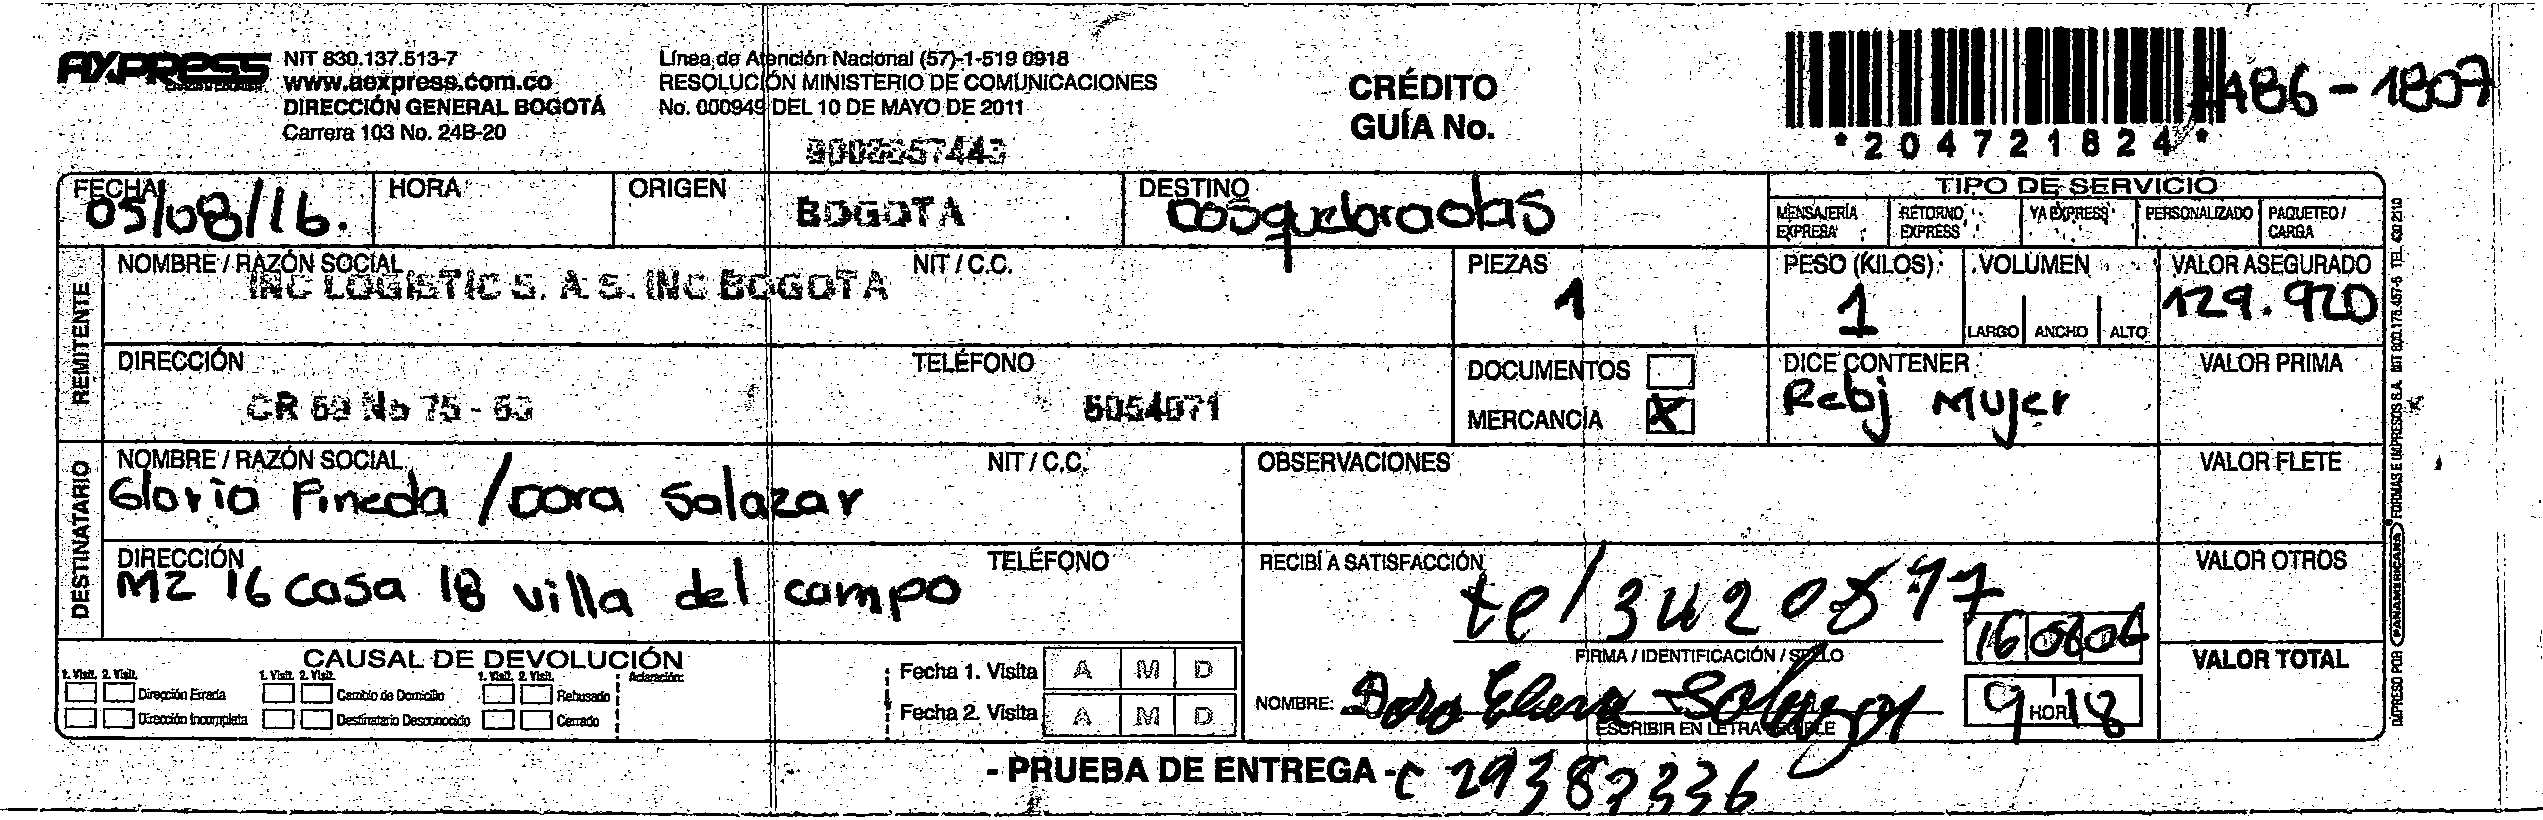 AXPRESS
NIT 830.137.513-7
www.aexpress.com.co
DIRECCIÓN GENERAL BOGOTÁ
Carrera 103 No. 24B-20
Línea de Atención Nacional (57)-1-519 0918
RESOLUCIÓN MINISTERIO DE COMUNICACIONES
No. 000949 DEL 10 DE MAYO DE 2011
CRÉDITO
GUÍA No.
A86-1807
*204721824*
FECHA 05/08/16.
HORA
ORIGEN BOGOTA
DESTINO Dosquebradas
TIPO DE SERVICIO
MENSAJERÍA EXPRESA
RETORNO EXPRESS
YA EXPRESS
PERSONALIZADO
PAQUETEO / CARGA
REMITENTE
NOMBRE / RAZÓN SOCIAL
INC LOGISTIC S. A. S. INC BOGOTA
NIT / C.C.
PIEZAS 1
PESO (KILOS) 1
VOLUMEN
LARGO ANCHO ALTO
VALOR ASEGURADO
129.920
DIRECCIÓN
CR 69 No 75 - 63
TELÉFONO
6054071
DOCUMENTOS
MERCANCÍA X
DICE CONTENER
Reloj Mujer
VALOR PRIMA
DESTINATARIO
NOMBRE / RAZÓN SOCIAL
Gloria Pineda / Dora Salazar
NIT / C.C.
OBSERVACIONES
VALOR FLETE
DIRECCIÓN
MZ 16 casa 18 villa del campo
TELÉFONO
RECIBÍ A SATISFACCIÓN
tel 3420577
FIRMA / IDENTIFICACIÓN / SELLO
VALOR OTROS
CAUSAL DE DEVOLUCIÓN
1. Visit. 2. Visit.
Dirección Errada
Dirección Incompleta
1. Visit. 2. Visit.
Cambio de Domicilio
Destinatario Desconocido
1. Visit. 2. Visit.
Rehusado
Cerrado
Aclaración:
Fecha 1. Visita A M D
Fecha 2. Visita A M D
NOMBRE: Dora Elena Salazar
ESCRIBIR EN LETRA LEGIBLE
9 HORA 18
VALOR TOTAL
- PRUEBA DE ENTREGA -
C 29382336
IMPRESO POR PANAMERICANA FORMAS E IMPRESOS S.A.